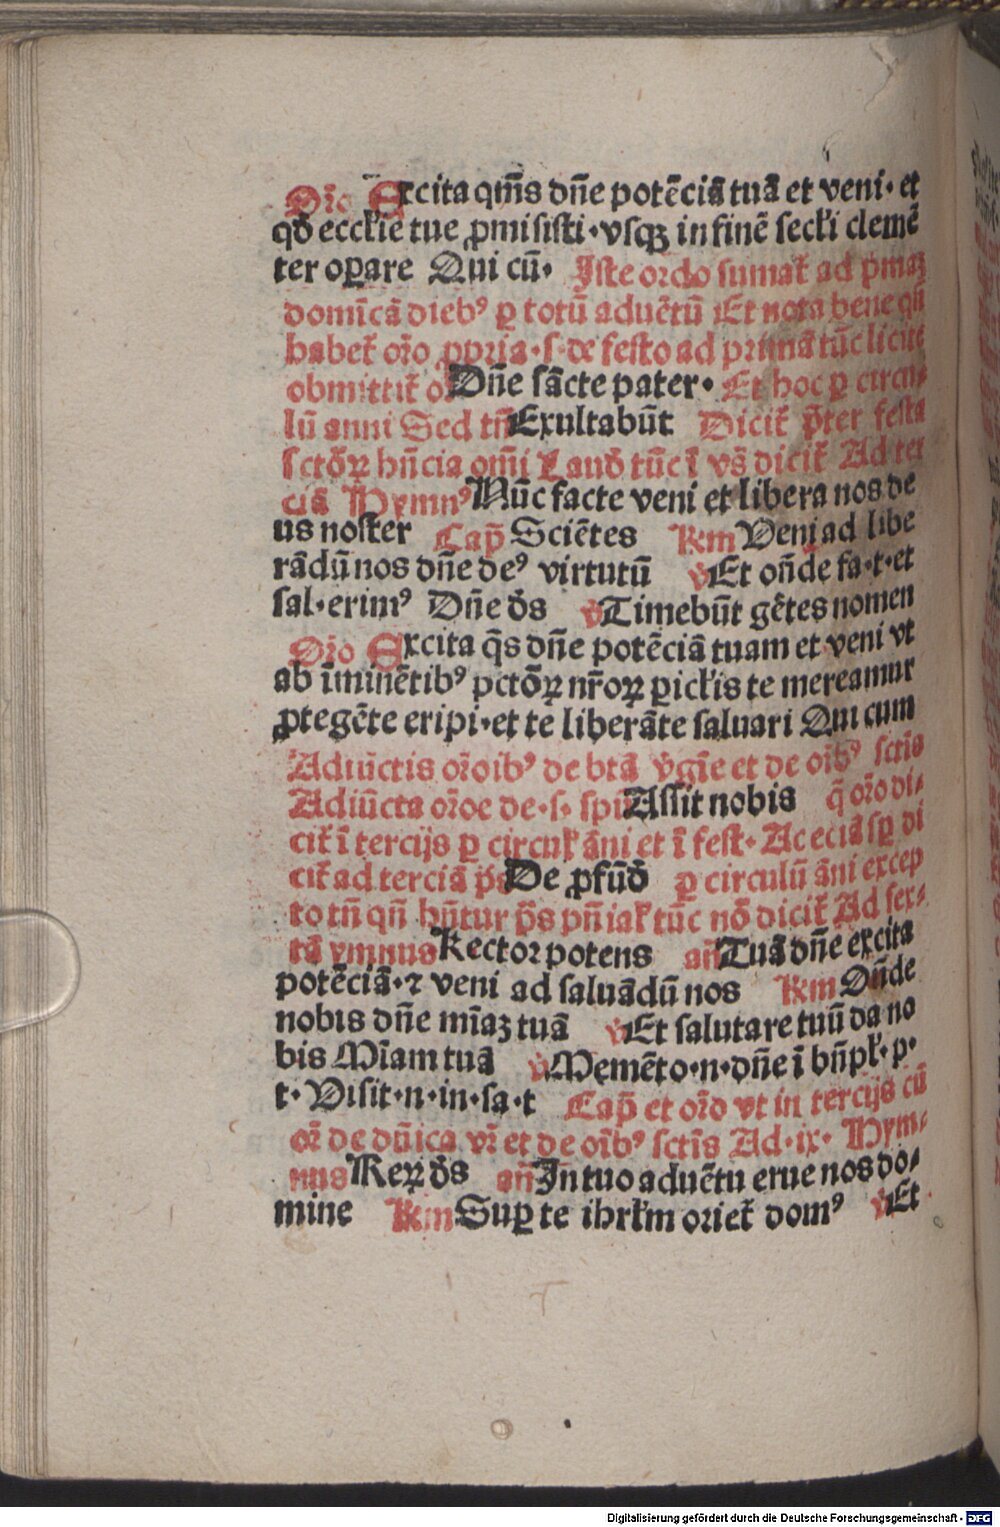 Orͦo Excita qm̄s dn̄e potēciā tuā et veni· et
qd̄ eccłie tue ꝓmisisti·vsqꝫ in finē secłi clemē
ter oꝑare Qui cū· Iste ordo sumat̄ ad p̄maꝫ
domīcā diebꝰ ꝑ totū aduētū Et nota bene qn̄
habet̄ oͦro ꝓpria·s·de festo ad primā tūc licite
obmittit̄ o Dn̄e sācte pater· Et hoc ꝑ circu⸗
lū anni Sed tn̄ Exultabūt Dicit̄ p̄ter festa
sctōꝝ hn̄cia om̄i laud̄ tūc ī vs̄ dicit̄ Ad ter
ciā Hymnꝰ Nūc facte veni et libera nos de
us noster Cap̄ Sciētes Rm Veni ad libe
rādū nos dn̄e deꝰ virtutū v̄ Et on̄de fa·t·et
sal·erimꝰ Dn̄e d̄s v̄ Timebūt gētes nomen
Orͦo Excita q̄s dn̄e potēciā tuam et veni vt
ab īminētibꝰ pctōꝝ nr̄oꝝ ꝑicłis te mereamur
ꝓtegēte eripi·et te liberāte saluari Qui cum
Adiūctis orͦoibꝰ de btā v̄gīe et de oībꝰ sctīs
Adiūcta orͦoe de·s·spū Assit nobis q̄ orͦo di⸗
cit̄ ī tercijs ꝑ circuł āni et ī fest· Ac eciā sꝑ di
cit̄ ad terciā p̄s De ꝓfūd̄ ꝑ circulū āni excep
to tn̄ qn̄ hn̄tur p̄s pn̄iał tūc nō dicit̄ Ad sex⸗
tā ymnus Rector potens an̄ Tuā dn̄e excita
potēciā·⁊ veni ad saluādū nos Rm On̄de
nobis dn̄e mīaꝫ tuā v̄ Et salutare tuū da no
bis Mīam tuā v̄ Memēto·n·dn̄e ī bn̄pł·p·
t·Visit·n·in·sa·t Cap̄ et orͦo vt in tercijs cū
or̄ de dn̄ica vr̄ et de oībꝰ sctīs Ad·ix· Hym⸗
nus Rex d̄s an̄ In tuo aduētu erue nos do⸗
mine Rm Suꝑ te ihrłm oriet̄ domꝰ v̄ Et
Digitalisierung gefördert durch die Deutsche Forschungsgemeinschaft - DFG